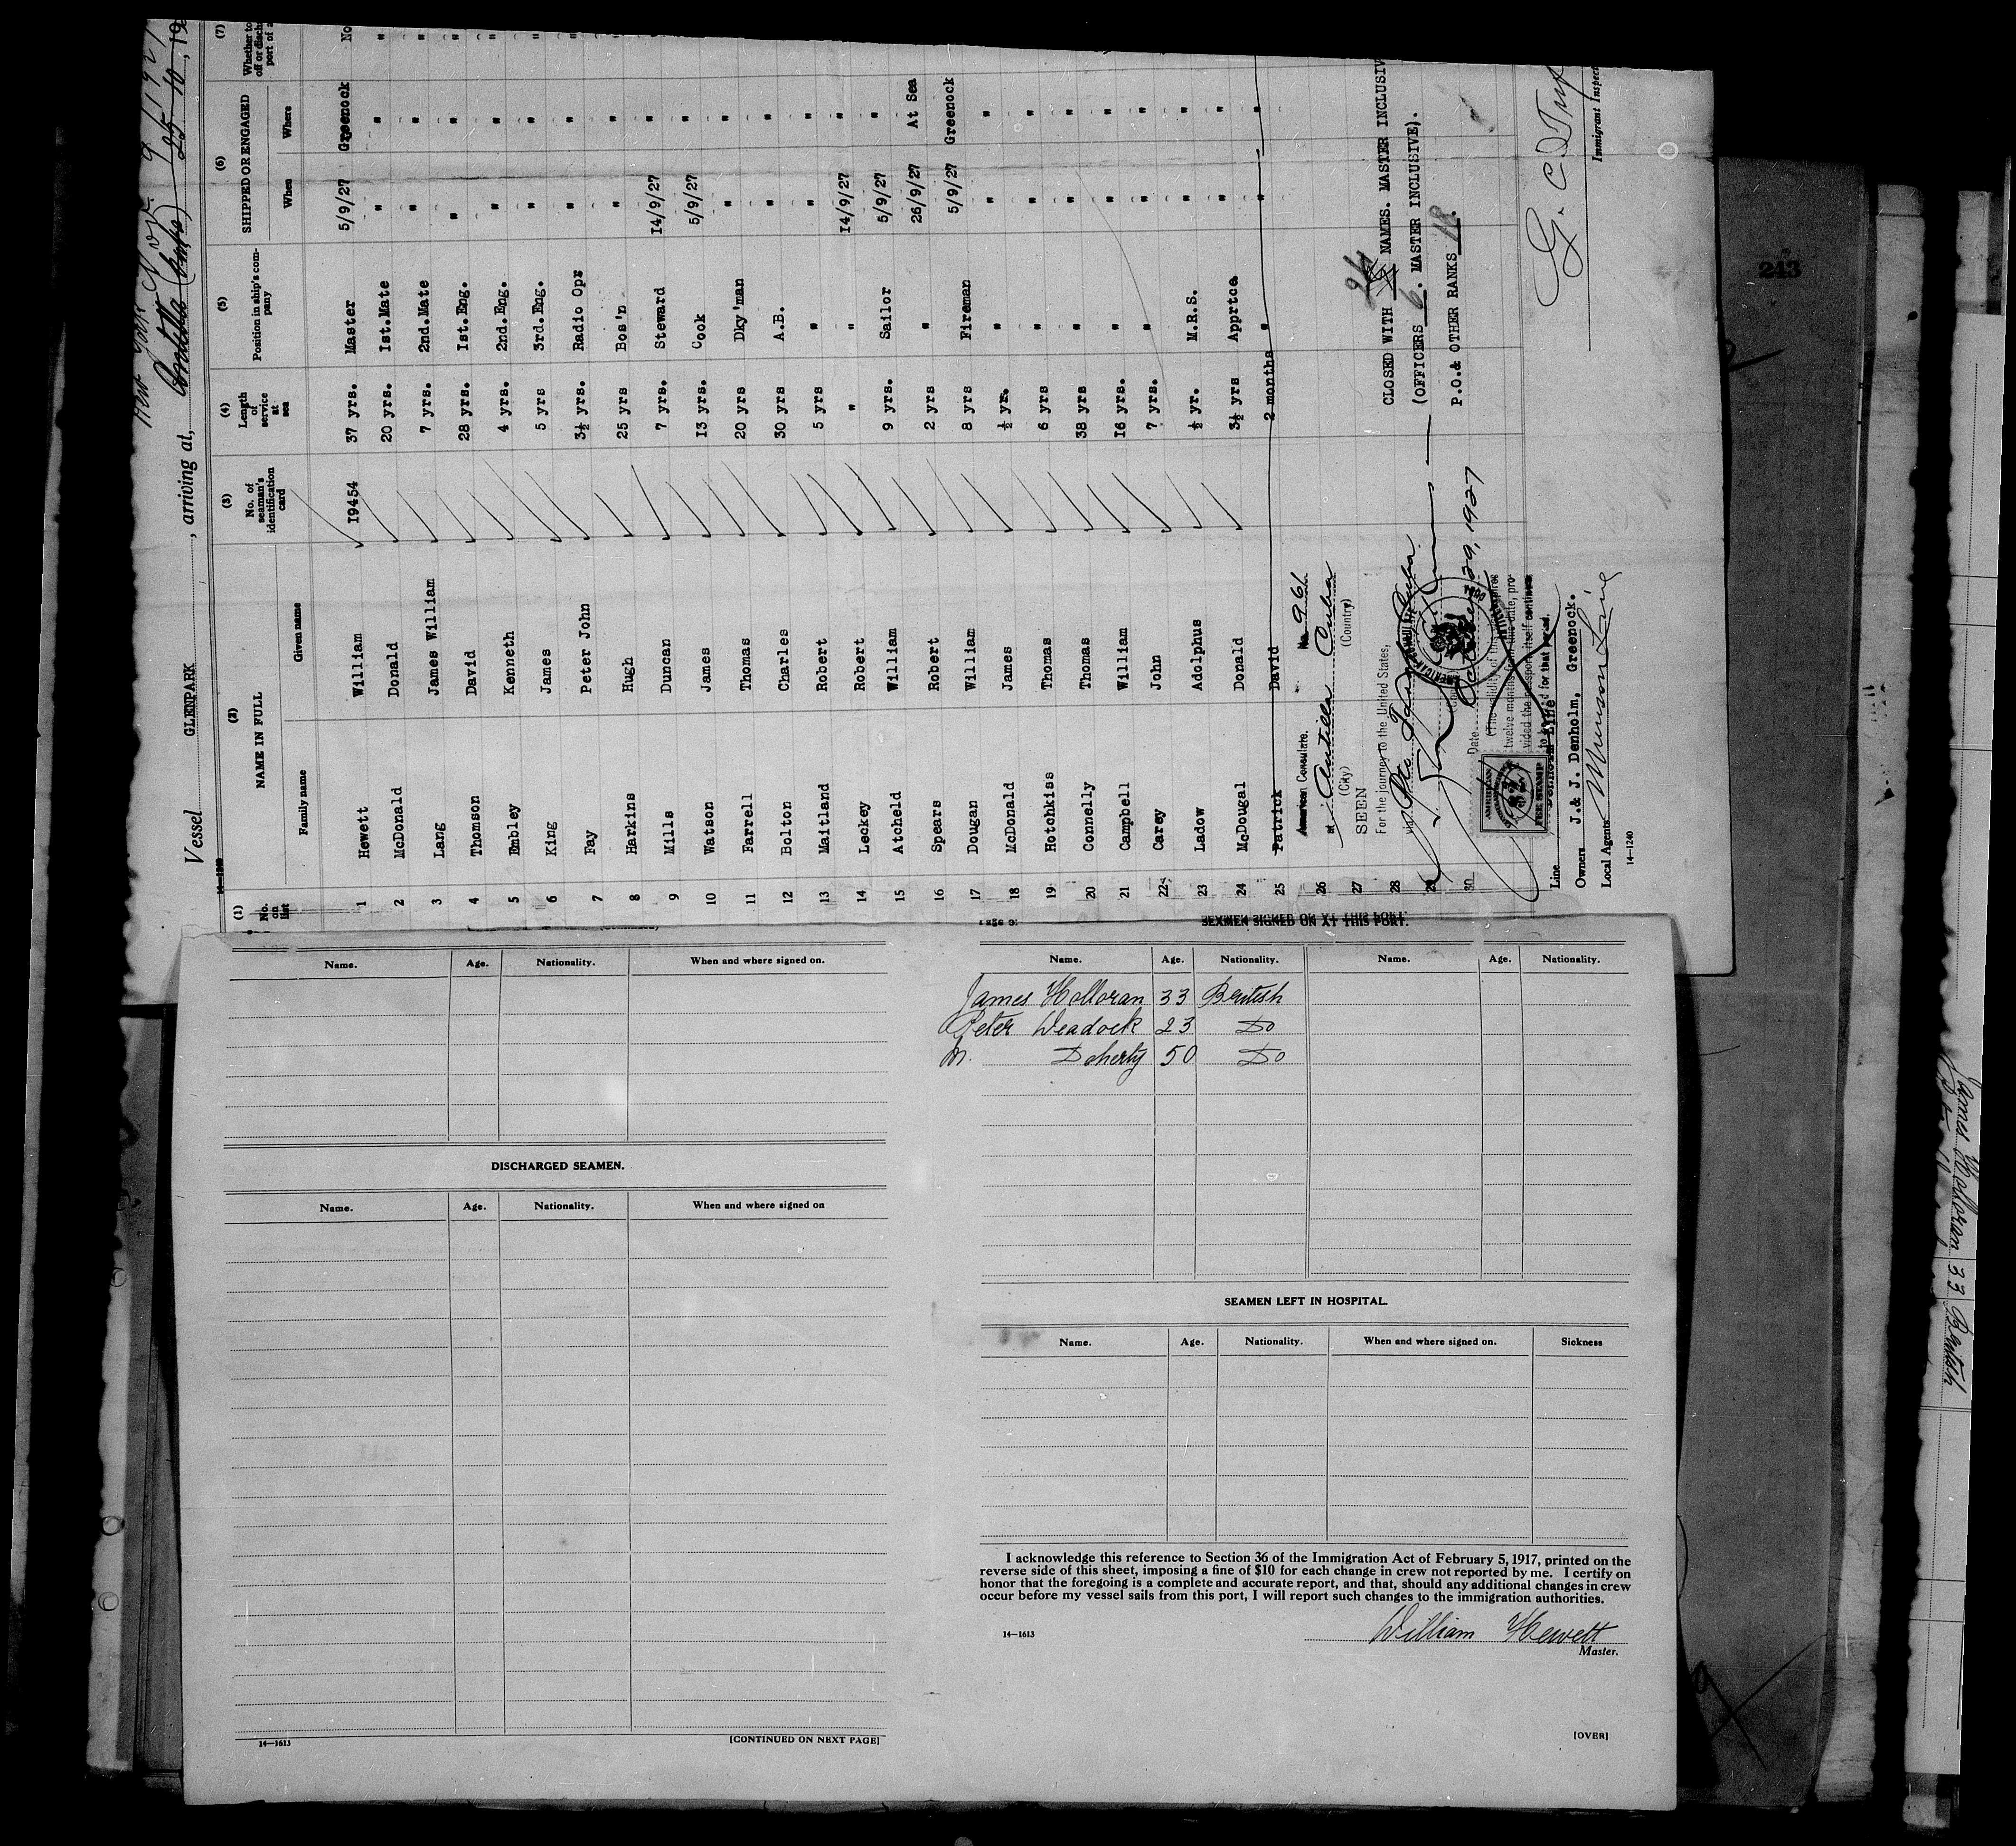 Vessel GLENPARK, arriving at, New York N.Y. 9/11 1927
Antilla (Cuba) 25 - 10, 19
14—1240
(1) No. on list
(2) NAME IN FULL
Family name Given name
(3) No. of seaman's identification card
(4) Length of service at sea
(5) Position in ship's company
(6) SHIPPED OR ENGAGED
When Where
(7)
1 Hewett William 19454 37 yrs. Master 5/9/27 Greenock No
2 McDonald Donald 20 yrs. 1st.Mate " " "
3 Lang James William 7 yrs. 2nd.Mate " " "
4 Thomson David 28 yrs. 1st.Eng. " " "
5 Embley Kenneth 4 yrs. 2nd.Eng. " " "
6 King James 5 yrs 3rd.Eng. " " "
7 Fay Peter John 3½ yrs. Radio Opr " " "
8 Harkins Hugh 25 yrs Bos'n " "
9 Mills Duncan 7 yrs. Steward 14/9/27 "
10 Watson James 13 yrs. Cook 5/9/27 "
11 Farrell Thomas 20 yrs Dky'man " "
12 Bolton Charles 30 yrs A.B. " "
13 Maitland Robert 5 yrs " " "
14 Leckey Robert " " 14/9/27 "
15 Atcheld William 9 yrs. Sailor 5/9/27 "
16 Spears Robert 2 yrs " 26/9/27 At Sea
17 Dougan William 8 yrs Fireman 5/9/27 Greenock
18 McDonald James ½ yr. " " "
19 Hotchkiss Thomas 6 yrs " " "
20 Connelly Thomas 38 yrs " " "
21 Campbell William 16 yrs. " " "
22 Carey John 7 yrs. " " "
23 Ladow Adolphus ½ yr. M.R.S. " "
24 McDougal Donald 3½ yrs Apprtce " "
25 Patrick David 2 months " " "
26
27
28
29
30
American Consulate. No 961
at Antilla Cuba
(City) (Country)
SEEN
For the journey to the United States,
Date October 29, 1927
(The validity of this visa expires
twelve months from this date, pro-
vided the passport itself continues
to be valid for that period.
AMERICAN
FEE STAMP
CLOSED WITH 24 NAMES. MASTER INCLUSIV
(OFFICERS 6. MASTER INCLUSIVE).
P.O.& OTHER RANKS 18.
Line Denholm Line
Owners J.& J. Denholm, Greenock.
Local Agents Munson Line
14—1240
Immigrant Inspec
243
Name. Age. Nationality. When and where signed on.
DISCHARGED SEAMEN.
Name. Age. Nationality. When and where signed on
14—1613 [CONTINUED ON NEXT PAGE]
SEAMEN SIGNED ON AT THIS PORT.
Name. Age. Nationality. Name. Age. Nationality.
James Holloran 33 British
Peter Weadock 23 Do
M. Doherty 50 Do
SEAMEN LEFT IN HOSPITAL.
Name. Age. Nationality. When and where signed on. Sickness
I acknowledge this reference to Section 36 of the Immigration Act of February 5, 1917, printed on the
reverse side of this sheet, imposing a fine of $10 for each change in crew not reported by me. I certify on
honor that the foregoing is a complete and accurate report, and that, should any additional changes in crew
occur before my vessel sails from this port, I will report such changes to the immigration authorities.
14—1613
William Hewett
Master.
[OVER]
James Holloran 33 British